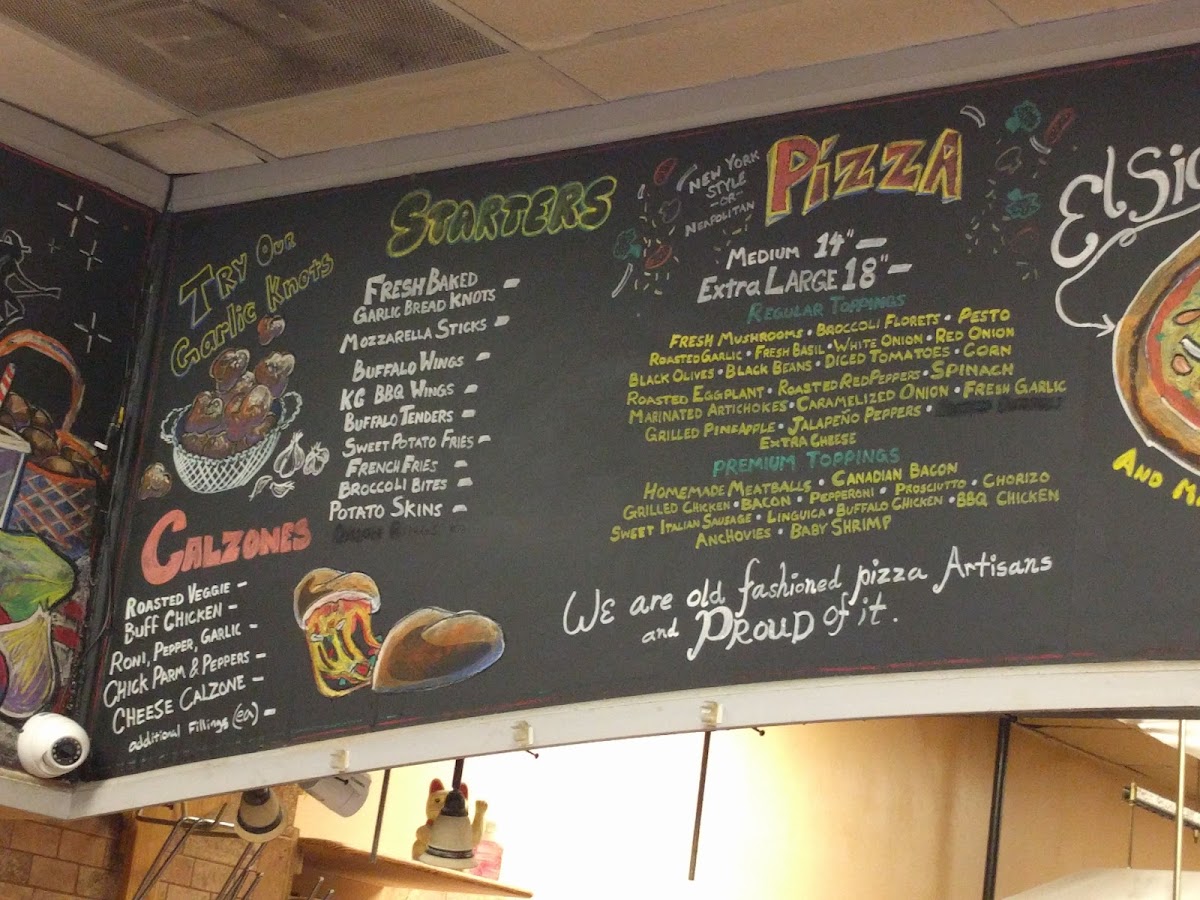 TRY OUR
Garlic Knots
CALZONES
ROASTED VEGGIE -
BUFF CHICKEN -
RONI, PEPPER, GARLIC -
CHICK PARM & PEPPERS -
CHEESE CALZONE -
additional Fillings (ea) -
STARTERS
FRESH BAKED
GARLIC BREAD KNOTS -
MOZZARELLA STICKS -
BUFFALO WINGS -
KC BBQ WINGS -
BUFFALO TENDERS -
SWEET POTATO FRIES -
FRENCH FRIES -
BROCCOLI BITES -
POTATO SKINS -
NEW YORK
STYLE
-OR-
NEAPOLITAN
PizzA
MEDIUM 14" -
Extra LARGE 18" -
REGULAR TOPPINGS
FRESH MUSHROOMS • BROCCOLI FLORETS • PESTO
ROASTED GARLIC • FRESH BASIL • WHITE ONION • RED ONION
BLACK OLIVES • BLACK BEANS • DICED TOMATOES • CORN
ROASTED EGGPLANT • ROASTED RED PEPPERS • SPINACH
MARINATED ARTICHOKES • CARAMELIZED ONION • FRESH GARLIC
GRILLED PINEAPPLE • JALAPEÑO PEPPERS •
EXTRA CHEESE
PREMIUM TOPPINGS
HOMEMADE MEATBALLS • CANADIAN BACON
GRILLED CHICKEN • BACON • PEPPERONI • PROSCIUTTO • CHORIZO
SWEET ITALIAN SAUSAGE • LINGUICA • BUFFALO CHICKEN • BBQ CHICKEN
ANCHOVIES • BABY SHRIMP
We are old fashioned pizza Artisans
and PROUD of it.
ElSi
AND M